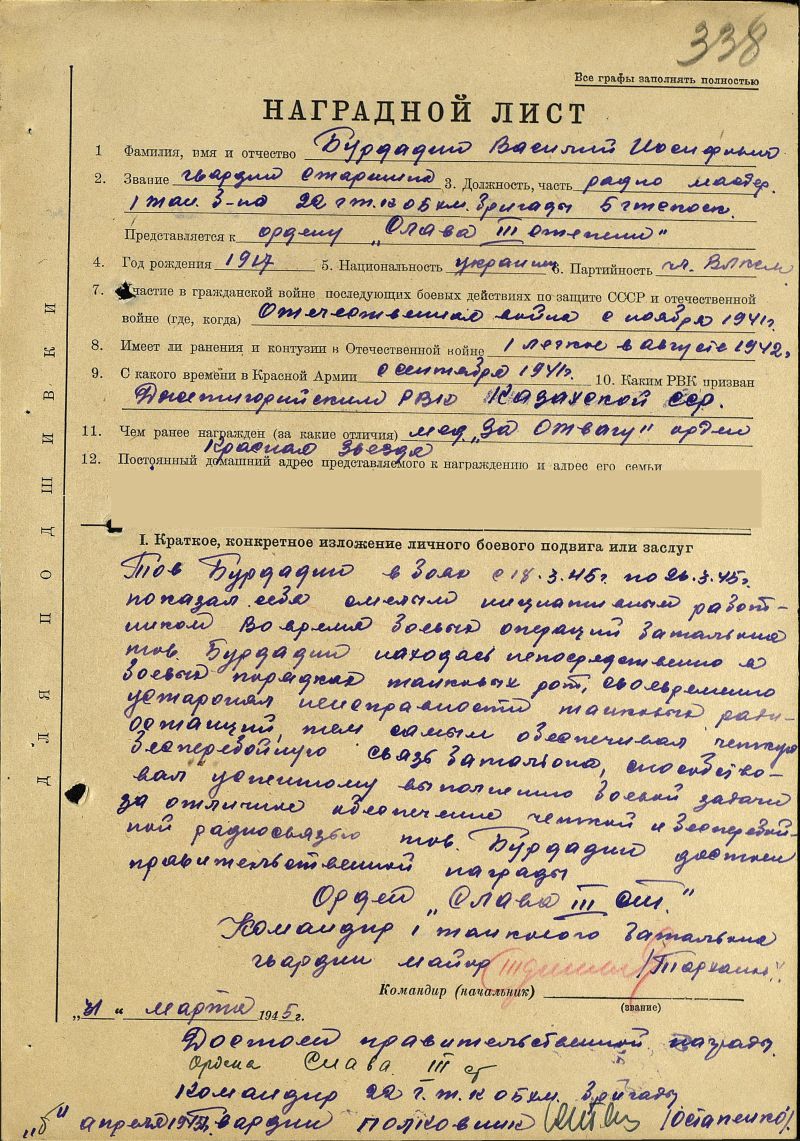 338
Все графы заполнять полностью
НАГРАДНОЙ ЛИСТ
1 Фамилия, имя и отчество Бурдадин Василий Иосифович
2. Звание гвардии старшина 3. Должность, часть радио мастер
1 тан. б-на 22 г т.к обкм. бригады 5 гтк
Представляется к ордену „Слава III степени"
4. Год рождения 1917 5. Национальность украинец 6. Партийность чл. ВЛКСМ
7. Участие в гражданской войне последующих боевых действиях по защите СССР и отечественной
войне (где, когда) Отечественная война с ноября 1941г.
8. Имеет ли ранения и контузии в Отечественной войне 1 легкое в августе 1942г
9. С какого времени в Красной Армии с сентября 1941г. 10. Каким РВК призван
Джетигорийским РВК Казахской сср.
11. Чем ранее награжден (за какие отличия) мед. „За Отвагу" орден
Красная Звезда
12. Постоянный домашний адрес представляемого к награждению и адрес его семьи
I. Краткое, конкретное изложение личного боевого подвига или заслуг
Тов Бурдадин в боях с 18.3.45г. по 26.3.45г.
показал себя смелым инициативным работ-
ником Во время боевых операций батальона
тов. Бурдадин находясь непосредственно в
боевых порядках танковых рот, своевременно
устаронял неисправности танковых ради-
останций, тем самым обеспечивал четкую
бесперебойную связь батальона, способство-
вал успешному выполнению боевой задачи
за отличное обеспечение четкой и бесперебой-
ной радиосвязью тов. Бурдадин достоин
правительственной награды
Орден „Слава III ст."
Командир 1 танкового батальона
гвардии майор /Тархани
Командир (начальник)
(звание)
„31" марта 1945г.
Достоен правительственной награды
Ордена Слава III ст
Командир 22 г.т.к обкм. бригады
„6" апреля 1945г Гвардии полковник /Остапенко/
ДЛЯ ПОДШИВКИ